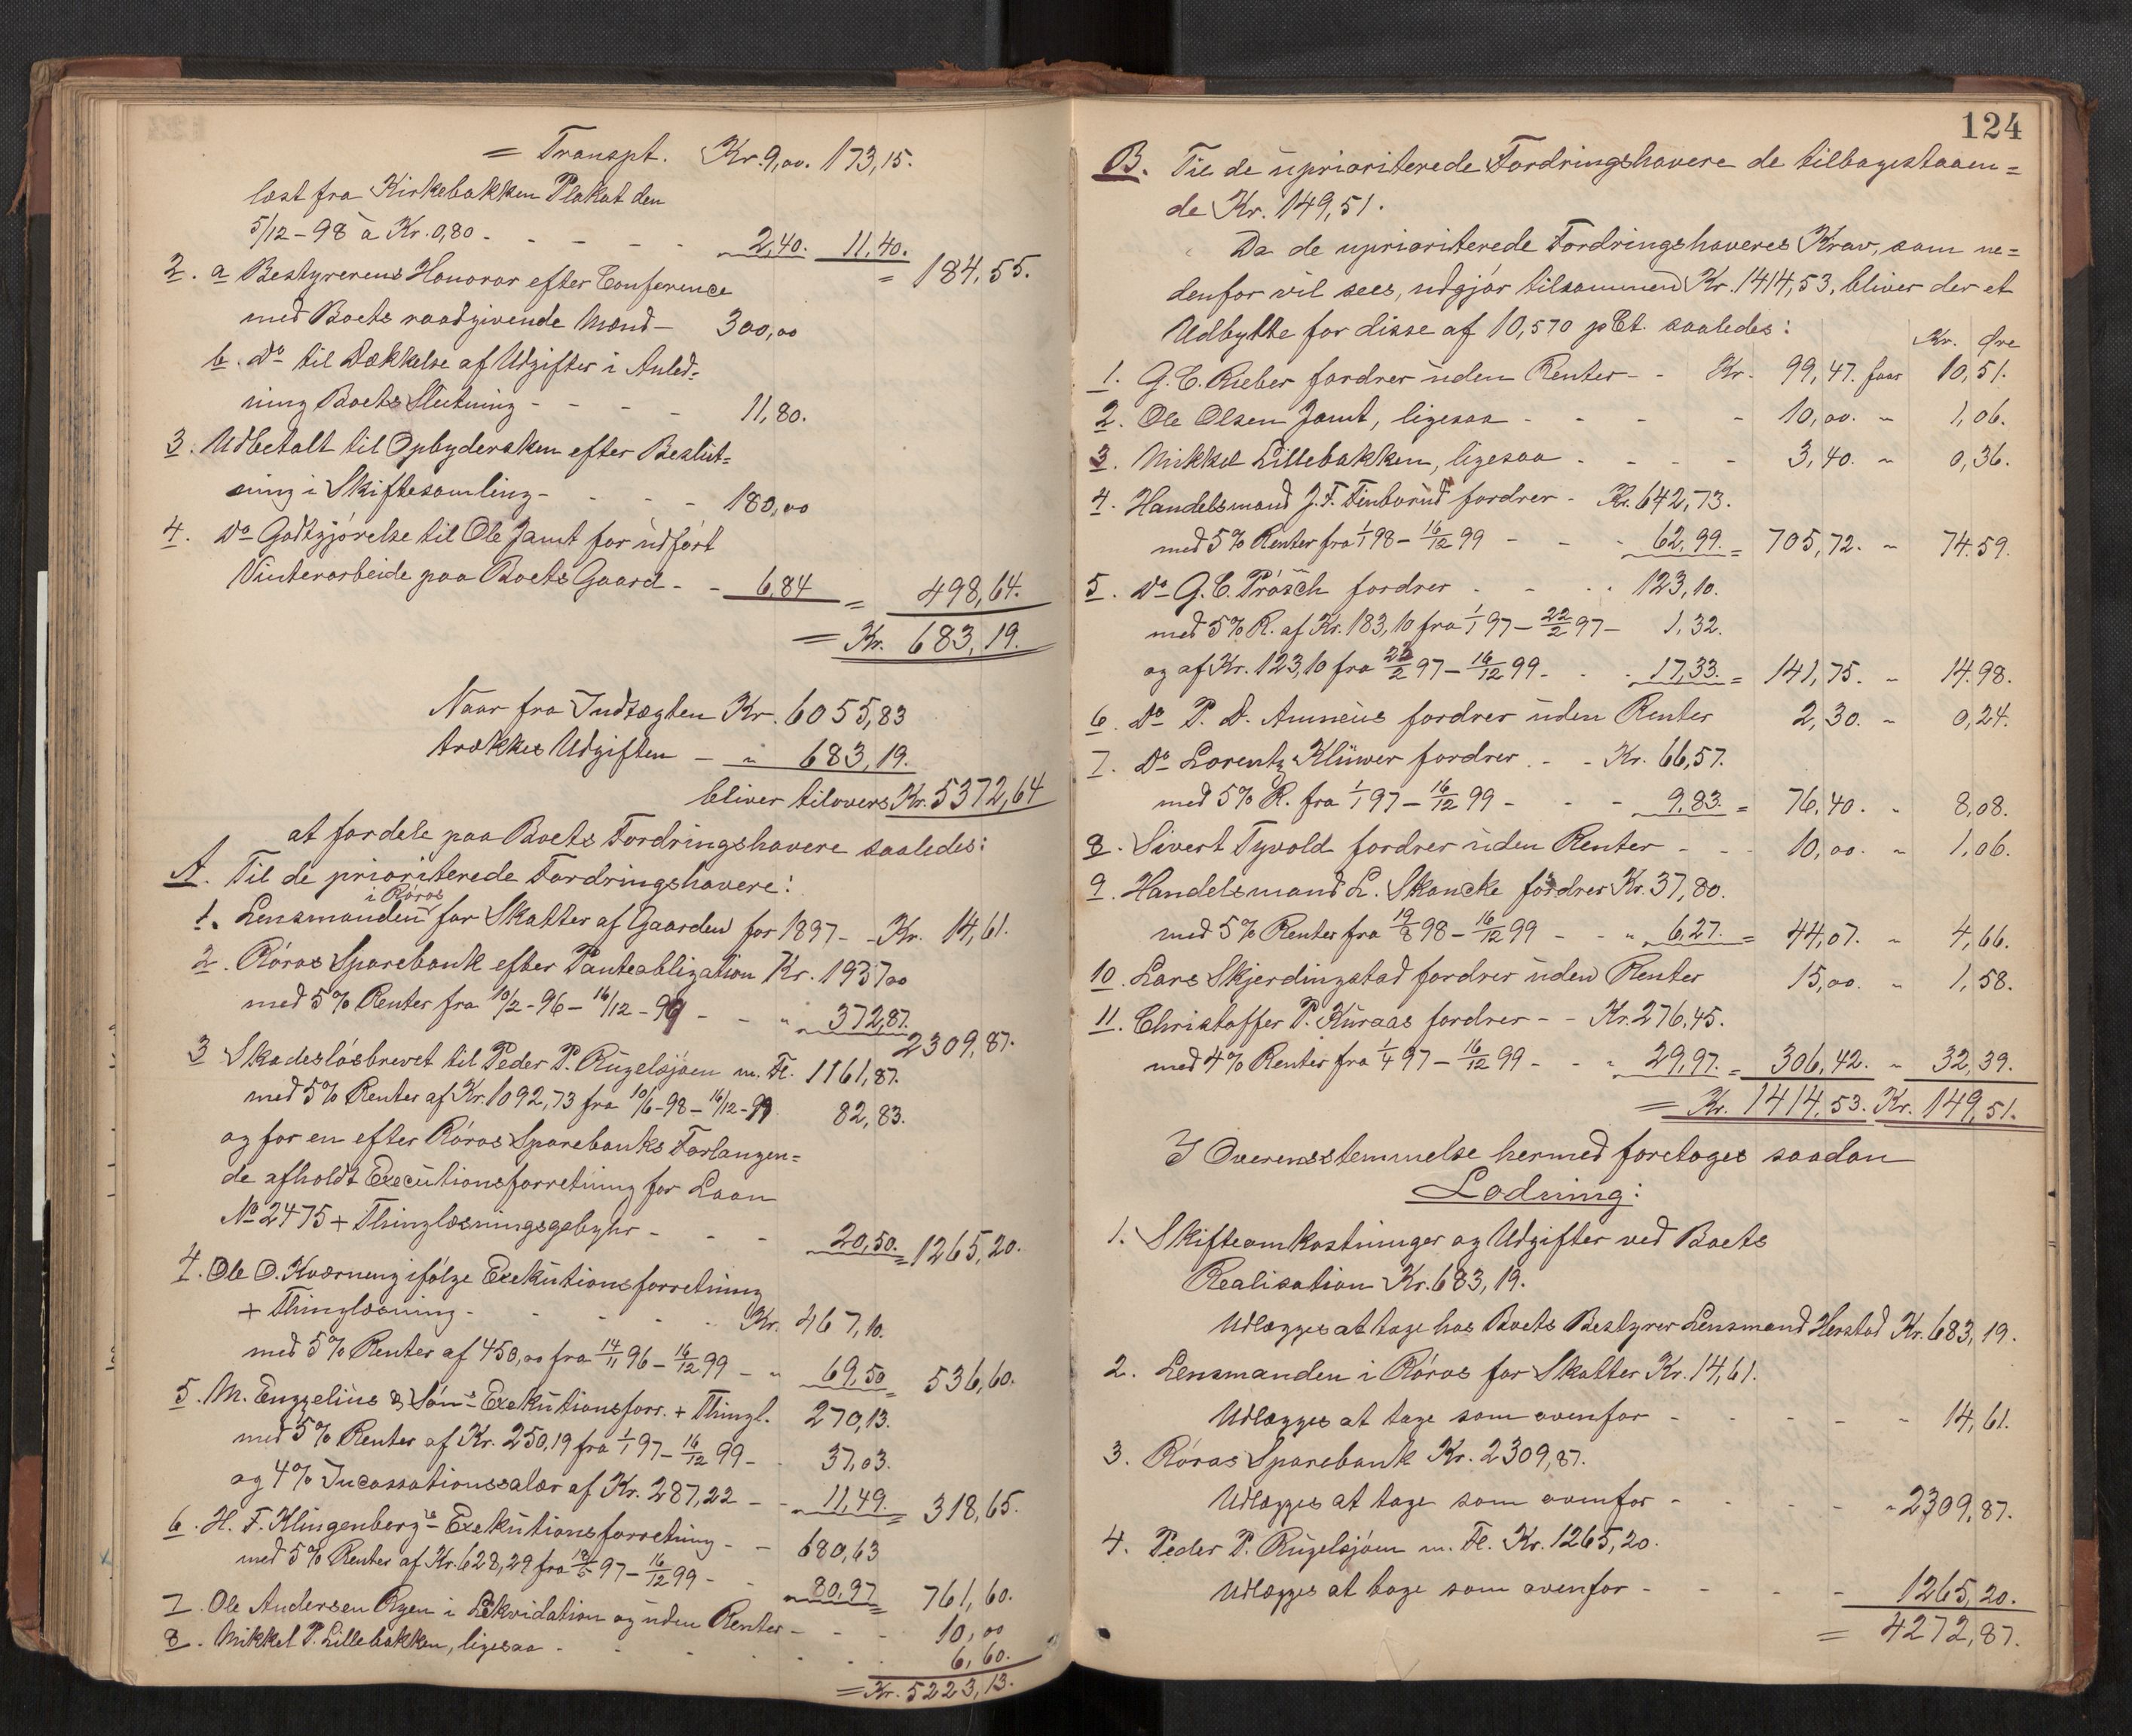 = Transpt. Kr. 9,00. 173,15.
læst fra Kirkebakken Plakat den
5/12-98 à Kr. 0,80 - - - - - " 2,40. 11,40.
= 184,55.
2. a Bestyrerens Honorar efter Conference
med Boets raadgivende Mænd - 300,00
b. Do til Dækkelse af Udgifter i Anled-
ning Boets Slutning - - - - 11,80.
3. Udbetalt til Opbydersken efter Beslut-
ning i Skiftesamling - - - - 180,00
4. Do Godtgjørelse til Ole Jamt for udført
Vinterarbeide paa Boets Gaard - - 6,84 = 498,64.
= Kr. 683,19.
Naar fra Indtægten Kr. 6055,83
trækkes Udgiften - " 683,19.
bliver tilovers Kr. 5372,64
at fordele paa Boets Fordringshavere saaledes:
A. Til de prioriterede Fordringshavere:
1. Lensmanden i Røros for Skatter af Gaarden for 1897 - - Kr. 14,61.
2. Røros Sparebank efter Panteobligation Kr. 1937,00
med 5% Renter fra 10/2-96 - 16/12-99 - - " 372,87.
2309,87.
3 Skadesløsbrevet til Peder P. Rugelsjøen m. Fl. 1161,87.
med 5% Renter af Kr. 1092,73 fra 10/6-98 - 16/12-99 82,83.
og for en efter Røros Sparebanks Forlangen-
de afholdt Executionsforretning for Laan
No 2475 + Thinglæsningsgebyhr - - - 20,50. = 1265,20.
4. Ole O. Kværneng ifølge Exekutionsforretning
+ Thinglæsning - - - - - Kr. 467,10.
med 5% Renter af 450,00 fra 14/11 96 - 16/12 99 - " 69,50 = 536,60.
5. M. Enggelius & Søns Exekutionsforr. + Thingl. 270,13.
med 5% Renter af Kr. 250,19 fra 1/1 97 - 16/12 99 - 37,03.
og 4% Incassationssalær af Kr. 287,22 - - 11,49. = 318,65.
6. H. F. Klingenbergs Exekutionsforretning - - 680,63
med 5% Renter af Kr. 628,29 fra 18/5 97 - 16/12 99 - " 80,97 = 761,60.
7. Ole Andersen Ryen i Likvidation og uden Renter - - - 10,00
8. Mikkel P. Lillebakken, ligesaa - - - - - - 6,60.
= Kr. 5223,13.
124
B. Til de uprioriterede Fordringshavere de tilbagestaaen-
de Kr. 149,51.
Da de uprioriterede Fordringshaveres Krav, som ne-
denfor vil sees, udgjør tilsammen Kr. 1414,53, bliver der et
Udbytte for disse af 10,570 pCt. saaledes:
Kr. Øre
1. G. C. Rieber fordrer uden Renter - - Kr. 99,47. faar 10,51.
2. Ole Olsen Jamt, ligesaa - - - - 10,00. " 1,06.
3. Mikkel Lillebakken, ligesaa - - - - 3,40. " 0,36.
4. Handelsmand J. F. Finborud fordrer - Kr. 642,73.
med 5% Renter fra 1/1 98 - 16/12 99 - - - 62,99. = 705,72. " 74.59.
5. Do G. C. Prøsch fordrer - - - - 123,10.
med 5% R. af Kr. 183,10 fra 1/1 97 - 22/2 97 - 1,32.
og af Kr. 123,10 fra 22/2 97 - 16/12 99 - - - 17,33. = 141,75. " 14.98.
6. Do P. D. Amnéus fordrer uden Renter 2,30. " 0,24.
7. Do Lorentz Klüwer fordrer - - - Kr. 66,57.
med 5% R. fra 1/1 97 - 16/12 99 - - - 9,83. = 76,40. " 8,08.
8. Sivert Tyvold fordrer uden Renter - - - 10,00. " 1,06.
9. Handelsmand L. Skancke fordrer Kr. 37,80.
med 5% Renter fra 19/8 98 - 16/12 99 - - " 6,27. = 44,07. " 4,66.
10. Lars Skjerdingstad fordrer uden Renter 15,00. " 1,58.
11. Christoffer P. Kuraas fordrer - - Kr. 276,45.
med 4% Renter fra 1/4 97 - 16/12 99 - - " 29,97. = 306,42. " 32,39.
= Kr. 1414,53. Kr. 149,51.
I Overensstemmelse hermed foretoges saadan
Lodning:
1. Skifteomkostninger og Udgifter ved Boets
Realisation Kr. 683,19.
Udlægges at tage hos Boets Bestyrer Lensmand Herstad Kr. 683,19.
2. Lensmanden i Røros for Skatter Kr. 14,61.
Udlægges at tage som ovenfor - - - - - " 14,61.
3. Røros Sparebank Kr. 2309,87.
Udlægges at tage som ovenfor - - - - " 2309,87.
4. Peder P. Rugelsjøen m. Fl. Kr. 1265,20.
Udlægges at tage som ovenfor - - - - 1265,20.
= 4272,87.